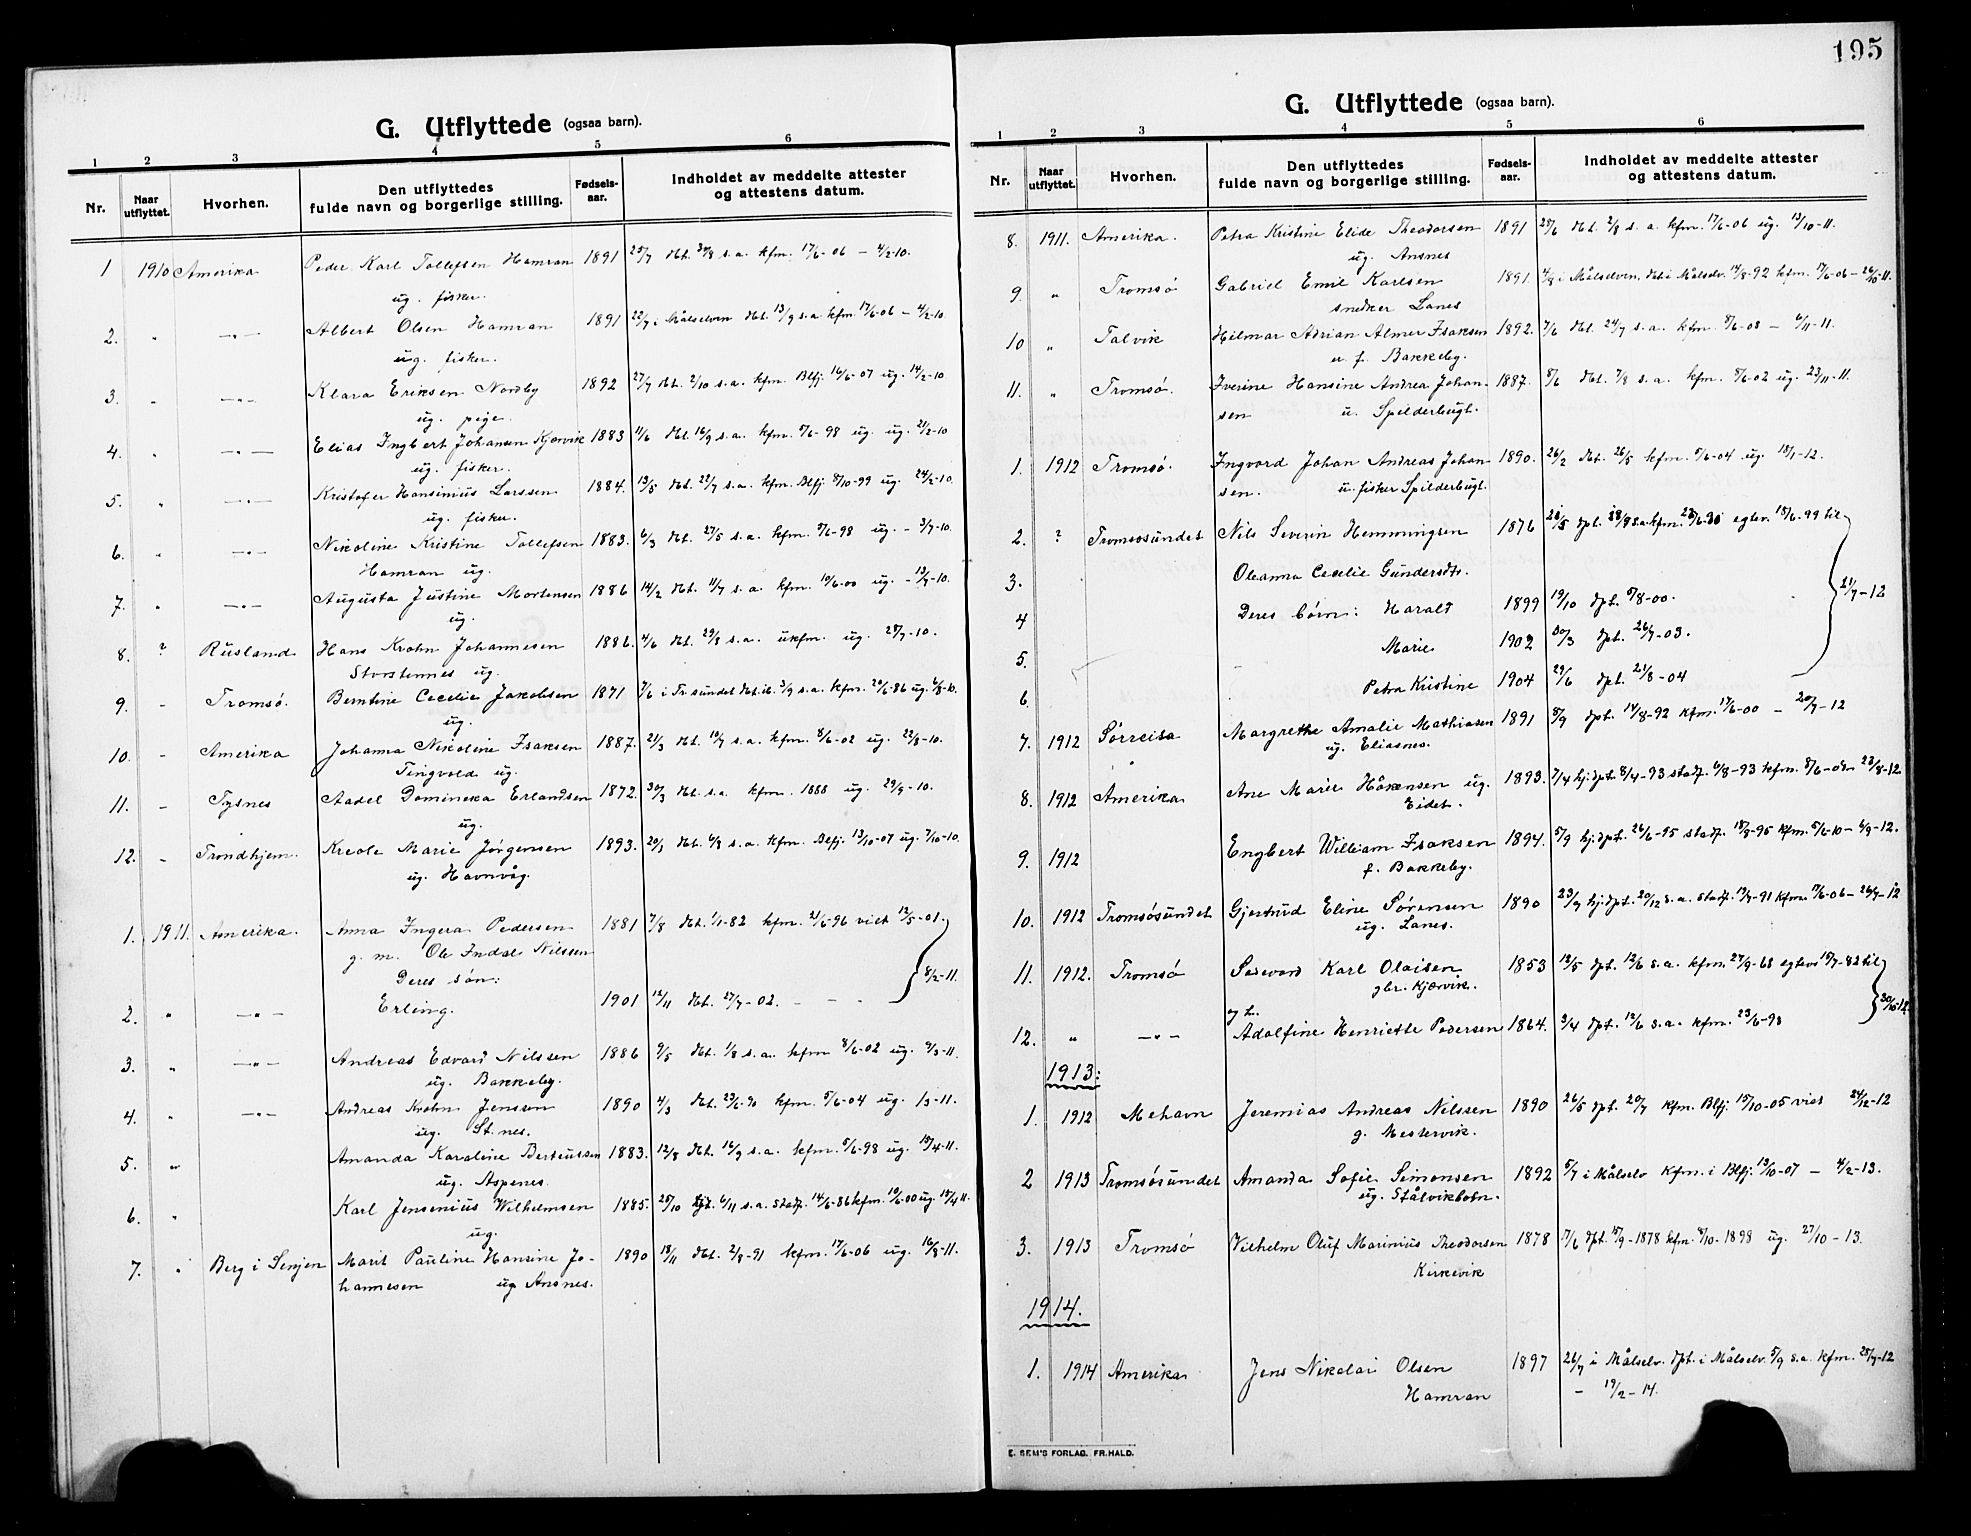 195
G. Utflyttede (ogsaa barn).
1 2 3 4 5 6
Nr. Naar utflyttet. Hvorhen. Den utflyttedes fulde navn og borgerlige stilling. Fødsels-aar. Indholdet av meddelte attester og attestens datum.
1 1910 Amerika Peder Karl Tollefsen Hamran 1891 25/7 dbt. 30/8 s.a. kfm. 17/6-06 — 4/2-10.
ug. fisker.
2. " —"— Albert Olsen Hamran 1891 22/7 i Målselven dbt. 13/9 s.a. kfm. 17/6-06 — 4/2-10
ug. fisker.
3. " —"— Klara Eriksen Nordby 1892 27/7 dbt. 2/10 s.a. kfm. Blfj. 16/6-07 ug. 14/2-10
ug. pige.
4. " —"— Elias Ingbert Johansen Kjørvik 1883 11/6 dbt. 16/9 s.a. kfm. 5/6-98 ug. ug. 21/2-10
ug. fisker.
5. " —"— Kristofer Hansinius Larssen 1884. 13/5 dbt. 22/7 s.a. kfm. Blfj. 8/10-99 ug. 24/2-10.
ug. fisker.
6. " —"— Nikoline Kristine Tollefsen 1883. 6/3 dbt. 27/5 s.a. kfm. 5/6-98 ug. — 3/7-10.
Hamran ug.
7. " —"— Augusta Justine Mortensen 1886 14/2 dbt. 11/7 s.a. kfm. 10/6-00 ug. — 13/7-10.
ug.
8. ? Rusland Hans Krohn Johannesen 1886. 4/6 dbt. 29/8 s.a. ukfm. ug. 28/7-10.
Storstennes ug.
9. - Tromsø. Berntine Cecelie Jakobsen 1871 7/6 i Tr.sundet dbt. ib. 3/9 s.a. kfm. 20/6-86 ug. 6/8-10.
ug.
10. - Amerika Johanna Nikoline Isaksen 1887. 21/3 dbt. 10/7 s.a. kfm. 8/6-02 ug. 22/8-10.
Tingvold ug.
11. - Tysnes Aadel Domineka Erlandsen 1872. 30/3 dbt. s.a. kfm. 1888 ug. 29/9-10.
ug.
12. - Trondhjem. Kreole Marie Jørgensen 1893. 20/3 dbt. 6/8 s.a. kfm. Blfj. 13/10-07 ug. 7/10-10.
ug. Havnvåg.
1. 1911. Amerika. Anna Ingera Pedersen 1881 7/8 dbt. 1/1-82 kfm. 21/6-96 viet 12/5-01.
g. m. Ole Indal Nilssen
Deres søn: 8/2-11.
2. " —"— Erling. 1901 12/11 dbt. 27/7-02. - - -
3. " —"— Andreas Edvard Nilssen 1886 9/5 dbt. 1/8 s.a. kfm 8/6-02 ug. 9/3-11.
ug. Bakkeby.
4. " —"— Andreas Krohn Jenssen 1890 4/3 dbt. 23/6-90 kfm. 5/6-04 ug. 1/3-11.
ug. St.nes.
5. " Amanda Karoline Berteussen 1883. 12/8 dbt. 16/9 s.a. kfm. 5/6-98 ug. 18/4-11.
ug. Aspenes.
6. " Karl Jensenius Wilhelmsen 1885. 25/10 dbt. 6/11 s.a. stadf. 14/6-86 kfm. 10/6-00 ug. 18/4 11.
ug.
7. " Berg i Senjen Marit Pauline Hansine Jo- 1890 18/11 dbt. 2/8-91 kfm. 17/6-06 ug. 16/8-11.
hannesen ug. Ansnes.
G. Utflyttede (ogsaa barn).
1 2 3 4 5 6
Nr. Naar utflyttet. Hvorhen. Den utflyttedes fulde navn og borgerlige stilling. Fødsels-aar. Indholdet av meddelte attester og attestens datum.
8. 1911. Amerika. Petra Kristine Elide Theodorsen 1891 25/6 dbt. 2/8 s.a. kfm. 17/6-06 ug. 13/10-11.
ug. Ansnes
9. " Tromsø Gabriel Emil Karlsen 1891. 4/8 i Målselven, dbt. i Målselv. 14/8-92 kfm. 17/6-06 — 26/10-11.
snekker Lanes
10 " Talvik Hilmar Adrian Almer Isaksen 1892. 7/6 dbt. 24/7 s.a. kfm. 8/6-08 — 6/11-11.
u. f. Bakkeby.
11. " Tromsø. Iverine Hansine Andrea Johan- 1887. 8/6 dbt. 7/8 s.a. kfm. 8/6-02 ug. 23/11-11.
sen u. Spilderbugt.
1. 1912 Tromsø. Ingvard Johan Andreas Johan 1890. 26/2 dbt. 26/5 kfm. 5/6-04 ug. 18/1-12.
sen. u. fisker Spilderbugt.
2. ? Tromsøsundet Nils Severin Hemmingsen 1876
3. Oleanna Cecelie Gundersdtr. 21/7-12
4 Deres børn: Harald 1899 19/10 dpt. 5/8-00.
5. Marie 1902 30/3 dpt. 26/7-03.
6. Petra Kristine 1904 29/6 dpt. 21/8-04
7. 1912 Sørreisa Margrethe Amalie Mathiasen 1891 8/9 dpt. 14/8-92 kfm. 17/6-00 — 20/7-12
ug. Eliasnes.
8. 1912 Amerika Ane Marie Håkonsen ug. 1893. 7/4 hj.dpt. 8/4-93 stadf. 6/8-93 kfm. 8/6-08 23/8-12
Eidet.
9. 1912 Engbert William Isaksen 1894. 5/9 hj.dpt. 26/6-95 stadf. 18/8-95 kfm. 5/6-10 — 6/9-12.
f. Bakkeby.
10. 1912 Tromsøsundet Gjertrud Eline Sørensen 1890 23/9 hj.dpt. 20/12 s.a. stadf. 19/7-91 kfm. 17/6-06 — 26/9-12
ug. Lanes.
11. 1912. Tromsø Sedevard Karl Olaisen 1853 13/5 dpt. 12/6 s.a. kfm. 27/9-68 egtev. 18/7-82 til
gbr. Kjørvik. 30/10-12.
og h.
12. " —"— Adolfine Henriette Pedersen 1864. 3/4 dpt. 12/6 s.a. kfm. 23/6-98
1913:
1. 1912 Mehavn Jeremias Andreas Nilssen 1890 26/5 dpt. 20/7 kfm. Blfj. 15/10-05 viet 24/12-12
g. Mestervik.
2 1913 Tromsøsundet Amanda Sofie Simonsen 1892 5/7 i Målselv kfm. i Blfj. 13/10-07 — 4/2-13.
ug. Stålvikbotn.
3. 1913 Tromsø Vilhelm Oluf Marinius Theodorsen 1878 7/6 dpt. 15/9-1878 kfm. 9/10-1898 ug. 27/10-13.
Kirkevik
1914.
1. 1914 Amerika Jens Nikolai Olsen 1897 26/7 i Målselv. dpt. i Målselv. 5/9 s.a. kfm. 28/7-12
Hamran — 19/2-14.
E. SEM'S FORLAG. FR.HALD.